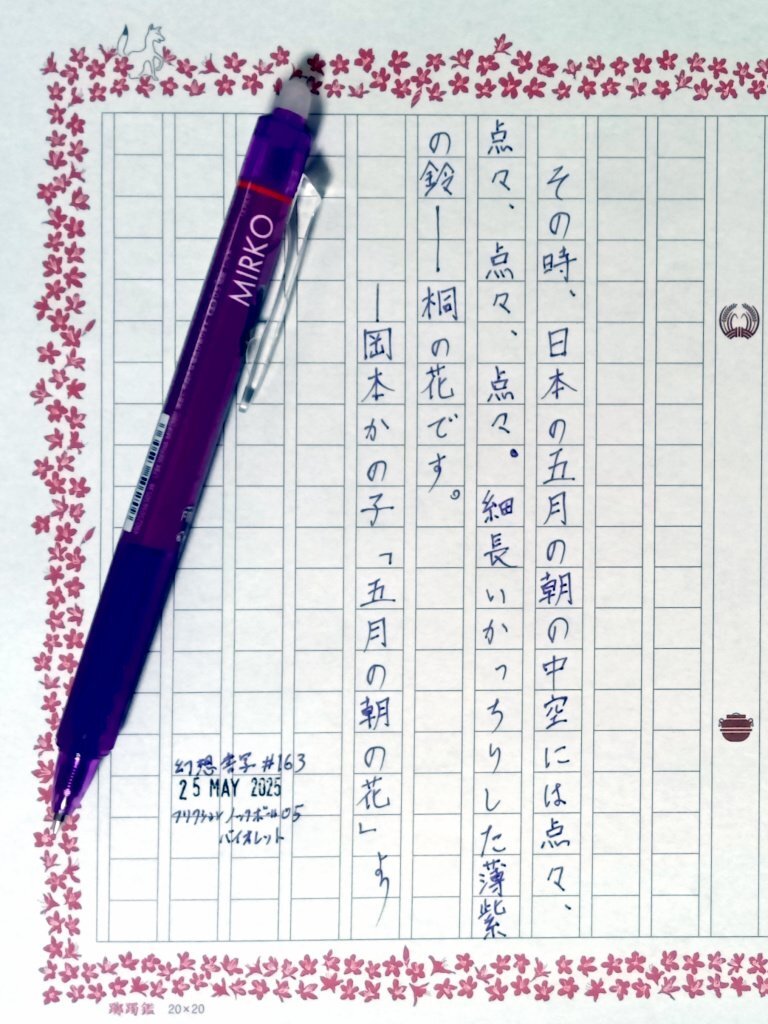 その時、日本の五月の朝の中空には点々、
点々、点々、点々。細長いかっちりした薄紫
の鈴――桐の花です。
―岡本かの子「五月の朝の花」より
幻想書写#163
25 MAY 2025
フリクションノックボール05
バイオレット
MIRKO
躑躅鑑 20×20